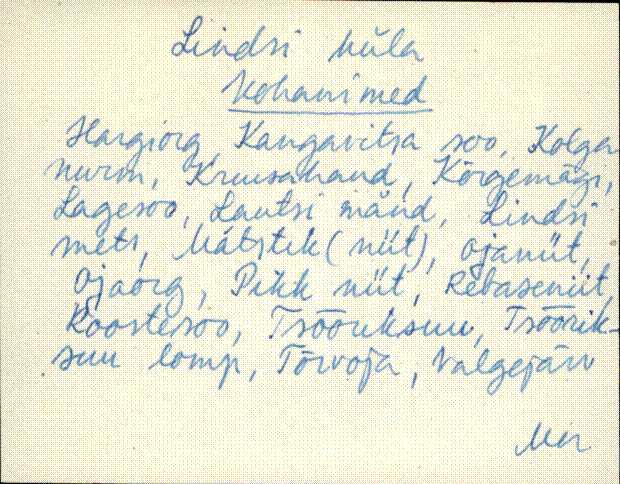 Lindsi küla
Kohanimed
Hargiorg, Kangavitsa soo, Kolga
nurm, Kruusahaud, Kõrgemägi,
Lagesoo, Lautsi mänd, Lindsi
mets, Mätstik (niit), Ojaniit,
Ojaorg, Pikk niit, Rebaseniit,
Roostesoo, Tsõõriksuu, Tsõõrik-
suu lomp, Tõrvoja, Valgejärv